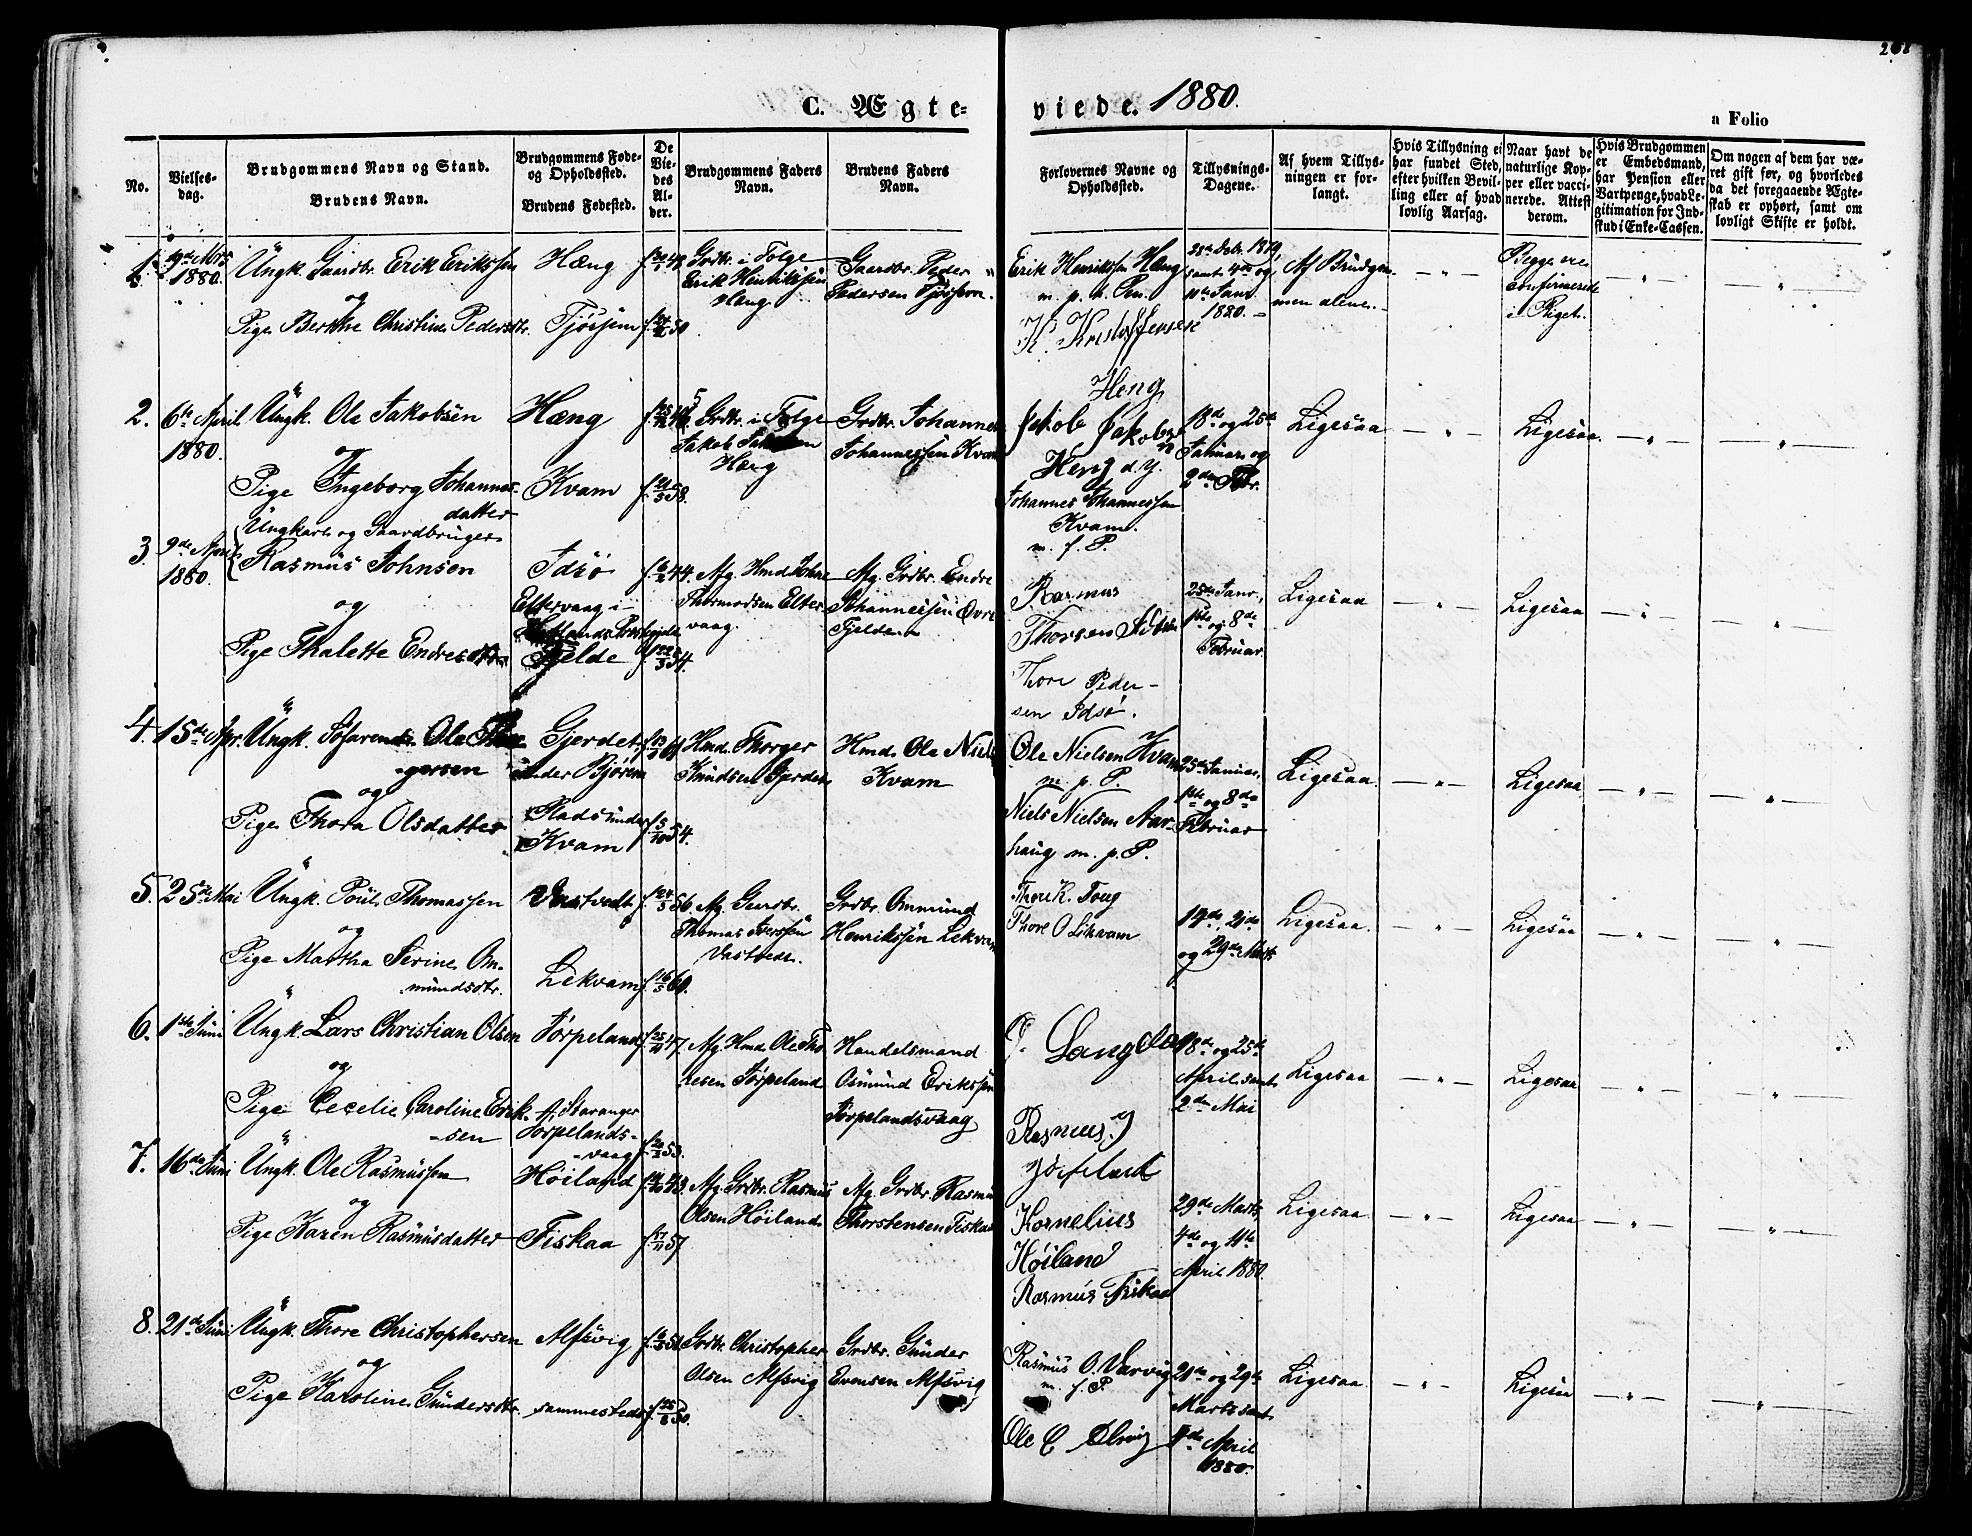 C. Ægte-
viede. 1880.
a Folio
No.
Vielses-
dag.
Brudgommens Navn og Stand.
Brudens Navn.
Brudgommens Føde-
og Opholdssted.
Brudens Fødested.
De
Vie-
des
Al-
der.
Brudgommens Faders
Navn.
Brudens Faders
Navn.
Forlovernes Navne og
Opholdssted.
Tillysnings-
Dagene.
Af hvem Tillys-
ningen er for-
langt.
Hvis Tillysning ei
har fundet Sted,
efter hvilken Bevil-
ling eller af hvad
lovlig Aarsag.
Naar havt de
naturlige Kop-
per eller vacci-
nerede. Attest
derom.
Hvis Brudgommen
er Embedsmand,
har Pension eller
Vartpenge, hvad Le-
gitimation for Ind-
skud i Enke-Cassen.
Om nogen af dem har væ-
ret gift før, og hvorledes
da det foregaaende Ægte-
skab er ophørt, samt om
lovligt Skifte er holdt.
1.
1880.
Ungk. Gaardbr. Erik Erikssen
og
Pige Berthe Christine Pedersdtr.
Hæng
Tjøssem
Grdbr. i Følge
Erik Henrikssen
Heng
Gaardbr. Peder
Pedersen Tjøssem.
Erik Henrikssen Hæng
m. p. Pen.
K. Kristoffersen
Heng
28de Debr. 1879,
samt 4de og
11te Janr.
1880.
Af Brudgom-
men alene.
Begge ere
confirmerede
i Riget.
2. 6te April
1880.
Ungk. Ole Jakobsen
og
Pige Ingeborg Johannes-
datter
Hæng
Kvam
Grdbr. i Følge
Jakob
Hæng
Grdbr. Johannes
Johannessen Kvam
Jakob Jakobsen
Heng d.y.
Johannes Johannessen
Kvam.
m. f. P.
18de og 25de
Januar og
2den Febr.
Ligesaa
Ligesaa
3. 9de April
1880.
Ungkarl og Gaardbruger
Rasmus Johnsen
og
Pige Thalette Endresdtr.
Idsø
Eltervaag i
Fjelde
Afg. Hmd. John
Thormodsen Elter-
vaag.
Afg. Grdbr. Endre
Johannessen Øvre
Fjelde
Rasmus
Thorsen Idsø
Thore Peder-
sen Idsø.
25de Janr.,
1ste og 8de
Februar.
Ligesaa
Ligesaa
4. 15de Apr.
Ungk. Søfarende Ole Thor-
gersen
og
Pige Thora Olsdatter
Gjerdet
under Bjøreim
Plads under
Kvam
Hmd. Thorger
Knudsen Gjerdet
Hmd. Ole Niels
Kvam
Ole Nielsen Kvam
m. p. P.
Niels Nielsen Aar-
haug m. p. P.
25de Januar,
1ste og 8de
Februar
Ligesaa
Ligesaa
5. 25de Mai
Ungk. Poul Thomassen
og
Pige Martha Serine Om-
mundsdtr.
Vastvedt
Lekvam
Afg. Gaardbr.
Thomas Iverssen
Vastvedt.
Grdbr. Ommund
Henrikssen Lekvam
Thore K. Toug
Thore O Likvam
14de, 21de
og 29de Marts
Ligesaa
Ligesaa
6. 1ste Juni
Ungk. Lars Christian Olsen
og
Pige Cecelie Caroline Erik-
sen
Jørpeland
f. i Stavanger
Jørpelands-
vaag
Afg. Hmd. Ole Tho-
resen Jørpeland
Handelsmand
Osmund Erikssen
Jørpelandsvaag
Rasmus
18de og 25de
April samt
2den Mai
Ligesaa
Ligesaa
7. 16de Juni
Ungk. Ole Rasmussen
og
Pige Karen Rasmusdatter
Høiland
Fiskaa
Afg. Grdbr. Rasmus
Olsen Høiland
Afg. Grdbr. Rasmus
Thorstensen Fiskaa
Kornelius
Høiland
Rasmus Fiskaa
29de Marts,
4de og 11te
April 1880.
Ligesaa
Ligesaa
8. 21de Juni
Ungk. Thore Christophersen
og
Pige Karoline Gundersdtr.
Alfsvig
sammesteds
Grdbr. Christopher
Olsen Alfsvig
Grdbr. Gunder
Evensen Alfsvig
Rasmus O. Varvig
m. f. P.
Ole C Alsvig
21de og 29de
Marts samt
4de April
1880.
Ligesaa
Ligesaa